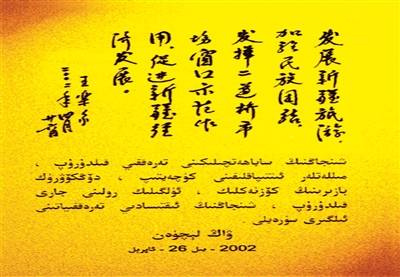 发展新疆旅游，
加强民族团结，
发挥二道桥市
场窗口示范作
用，促进新疆经
济发展。
王乐泉
二〇〇二年四月廿六日
شىنجاڭنىڭ ساياھەتچىلىكىنى تەرەققىي قىلدۇرۇپ ،
مىللەتلەر ئىتتىپاقلىقىنى كۈچەيتىپ ، دۆڭكۆۋرۈك
بازىرىنىڭ كۆزنەكلىك ، ئۈلگىلىك رولىنى جارى
قىلدۇرۇپ ، شىنجاڭنىڭ ئىقتىسادىي تەرەققىياتىنى
ئىلگىرى سۈرەيلى .
ۋاڭ لېچۈەن
2002 - يىل 26 - ئاپرېل